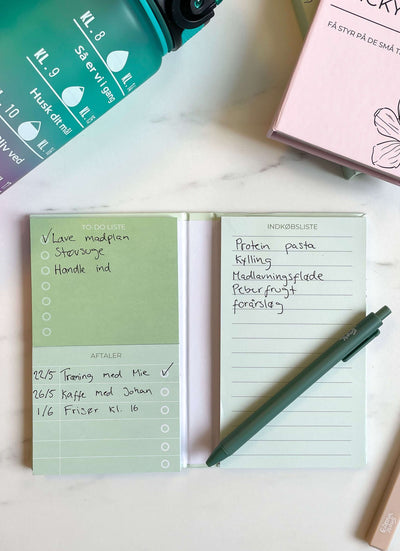 KL. 8
Så er vi i gang
KL. 9
Husk dit mål
10
bliv ved
FÅ STYR PÅ DE SMÅ T
TO-DO LISTE
Lave madplan
Støvsuge
Handle ind
AFTALER
22/5 Træning med Mie
26/5 Kaffe med Johan
1/6 Frisør kl. 16
INDKØBSLISTE
Protein pasta
Kylling
Madlavningsfløde
Peberfrugt
forårsløg